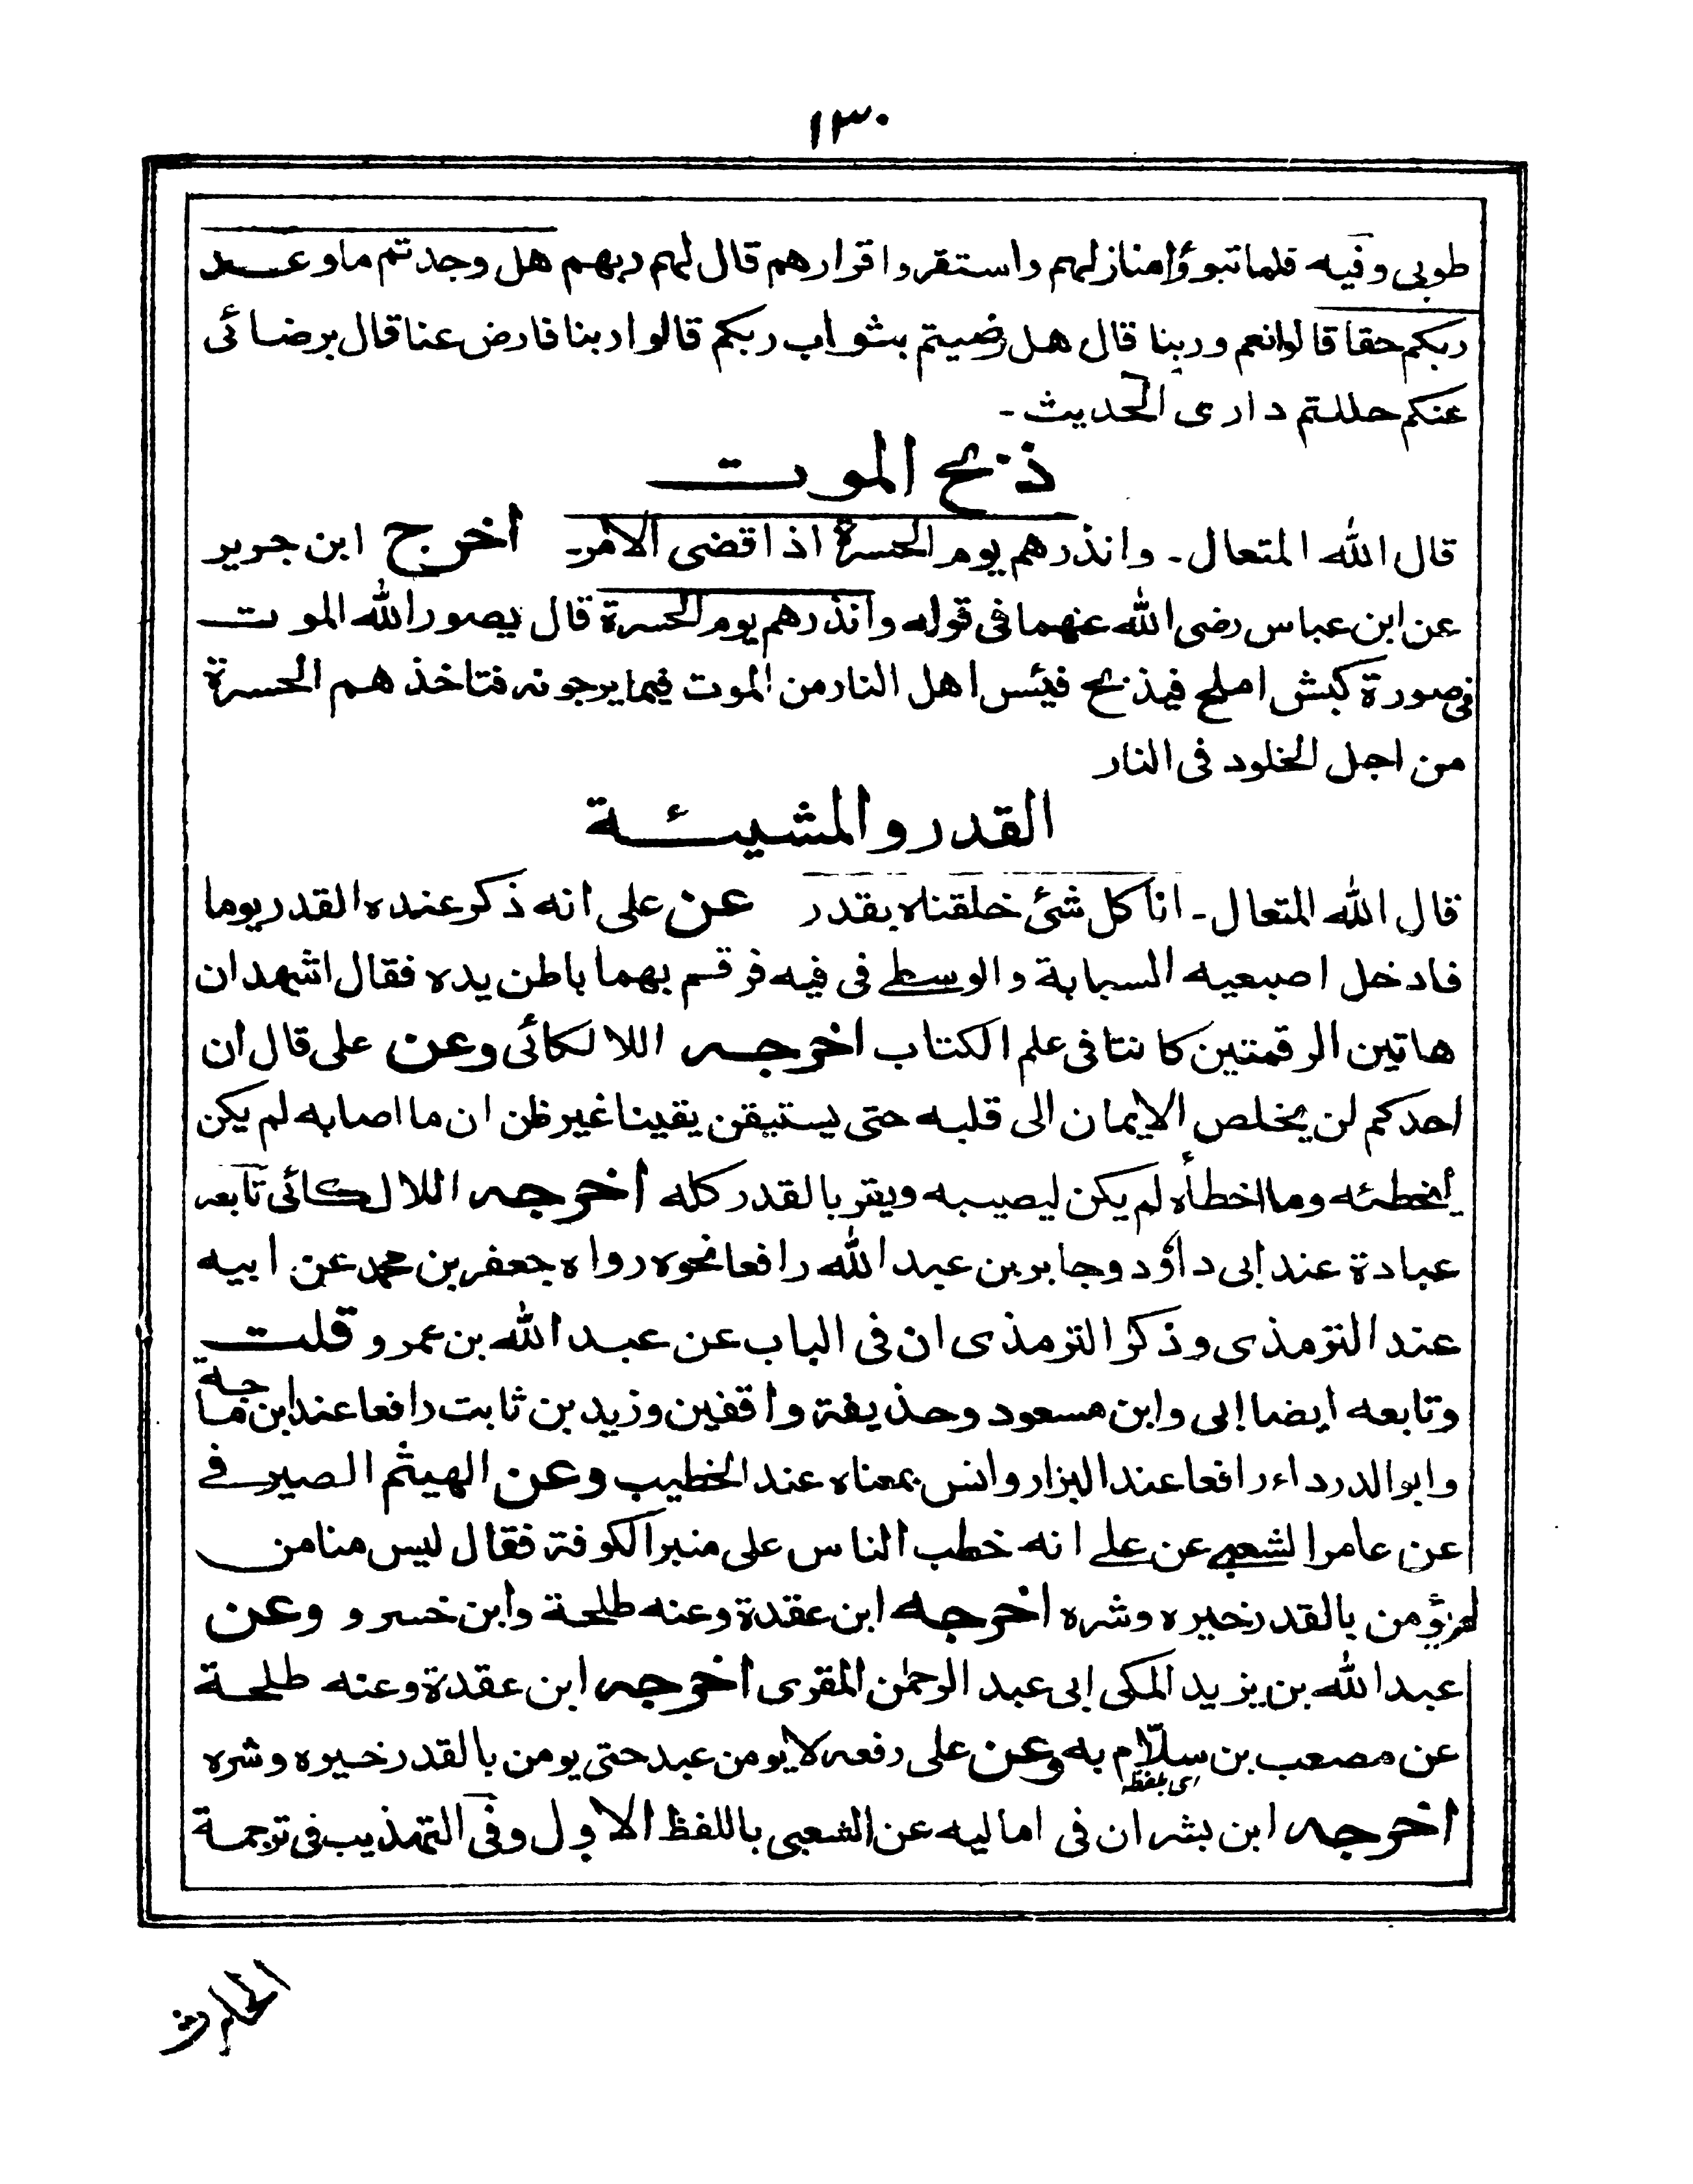 ١٣٠
طوبى وفيه فلما تبوؤا منازلهم واستقروا قرارهم قال لهم ربهم هل وجدتم ما وعد
ربكم حقا قالوا نعم وربنا قال هل رضيتم بثواب ربكم قالوا ربنا فارض عنا قال برضائى
عنكم حللتم دارى الحديث ـ
ذبح الموت
قال الله المتعال ـ وانذرهم يوم الحسرة اذا قضى الامر ـ اخرج ابن جرير
عن ابن عباس رضى الله عنهما فى قوله وانذرهم يوم الحسرة قال يصور الله الموت
فى صورة كبش املح فيذبح فيئس اهل النار من الموت فيما يرجونه فتاخذهم الحسرة
من اجل الخلود فى النار
القدر والمشيئة
قال الله المتعال ـ انا كل شئ خلقناه بقدر عن على انه ذكر عنده القدر يوما
فادخل اصبعيه السبابة والوسطے فى فيه فرقم بهما باطن يده فقال اشهد ان
هاتين الرقمتين كانتا فى علم الكتاب اخرجه اللالكائى وعن على قال ان
احدكم لن يخلص الايمان الى قلبه حتى يستيقن يقينا غير ظن ان ما اصابه لم يكن
ليخطئه وما اخطأه لم يكن ليصيبه ويقر بالقدر كله اخرجه اللالكائى تابعه
عبادة عند ابى داؤد وجابر بن عبد الله رافعا نحوه رواه جعفر بن محمد عن ابيه
عند الترمذى وذكر الترمذى ان فى الباب عن عبد الله بن عمرو قلت
وتابعه ايضا ابى وابن مسعود وحذيفة واقفين وزيد بن ثابت رافعا عند ابن ماجة
وابو الدرداء رافعا عند البزار وانس بمعناه عند الخطيب وعن الهيثم الصيرفے
عن عامر الشعبے عن علے انه خطب الناس على منبر الكوفة فقال ليس منا من
لم يؤمن بالقدر خيره وشره اخرجه ابن عقدة وعنه طلحة وابن خسرو وعن
عبد الله بن يزيد المكى ابى عبد الرحمٰن المقرى اخرجه ابن عقدة وعنه طلحة
عن مصعب بن سلّام به وعن على رفعه لا يومن عبد حتى يومن بالقدر خيره وشره
اى بلفظه
اخرجه ابن بشران فى اماليه عن الشعبى باللفظ الاول وفى التهذيب فى ترجمة
الحارث